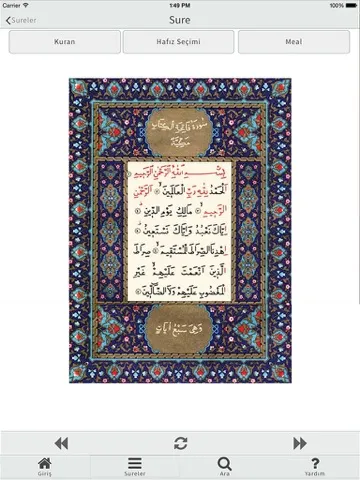 Carrier 1:49 PM 100%
Sureler Sure
Kuran Hafız Seçimi Meal
سورة فاتحة الكتاب
بسم الله الرحمن الرحيم
الحمد لله رب العالمين الرحمن
الرحيم مالك يوم الدين
اياك نعبد واياك نستعين
اهدنا الصراط المستقيم صراط
الذين انعمت عليهم غير
المغضوب عليهم ولا الضالين
وهي سبع ايات
Giriş Sureler Ara Yardım